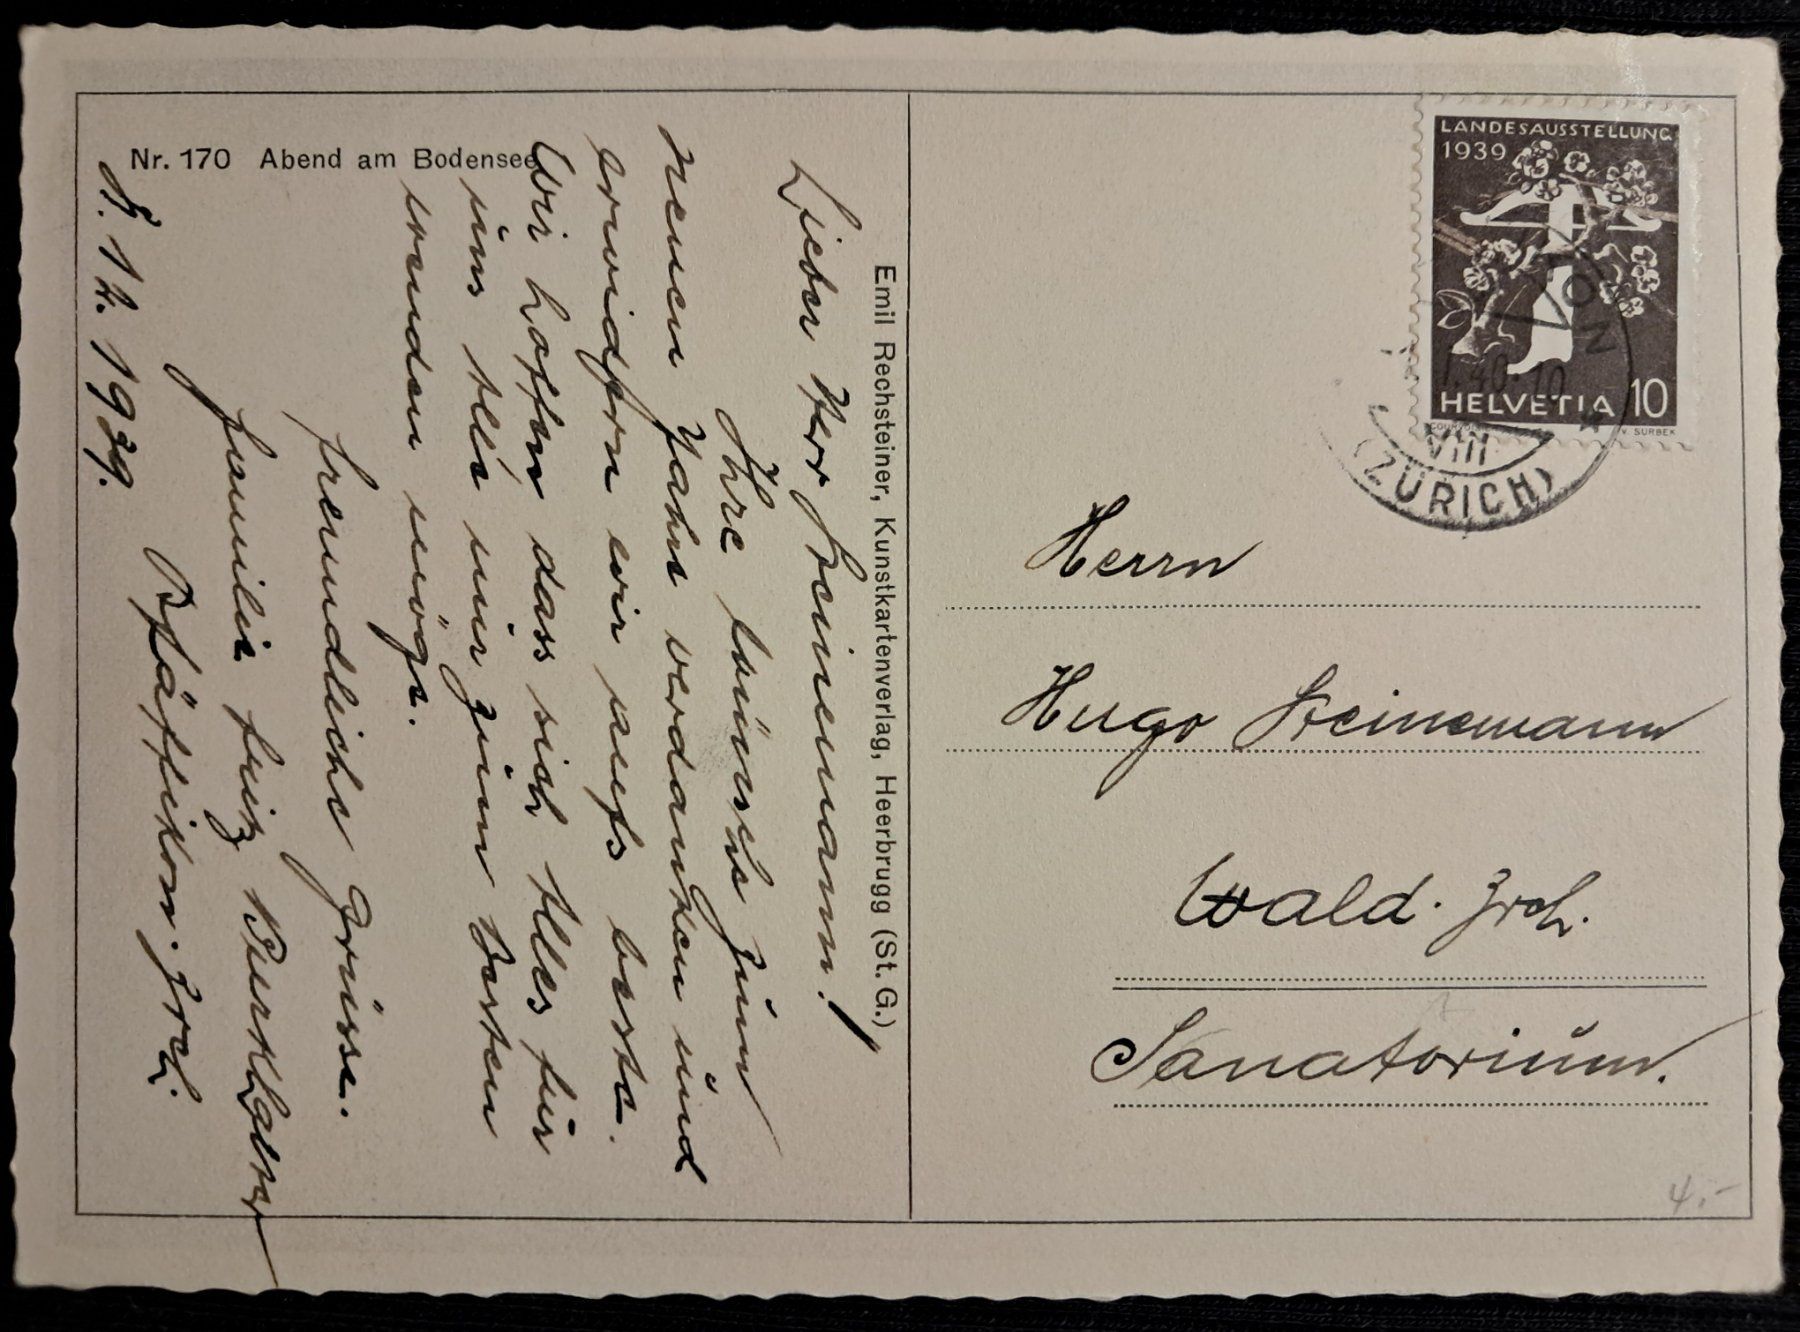 Nr. 170 Abend am Bodensee
Lieber Herr Steinemann!
Ihre Wünsche zum
neuen Jahre verdanken und
erwidern wir aufs beste.
Wir hoffen dass sich alles für
uns alle nur zum besten
wenden möge.
freundliche Grüsse.
Familie Heinz Burkhauer
Pfäffikon. Zrch.
12. 1939.
Emil Rechsteiner, Kunstkartenverlag, Heerbrugg (St. G.)
LANDESAUSSTELLUNG
1939
HELVETIA 10
V. SURBEK
40.10
VIII
(ZÜRICH)
Herrn
Hugo Steinemann
Wald. Zrch.
Sanatorium.
4.-